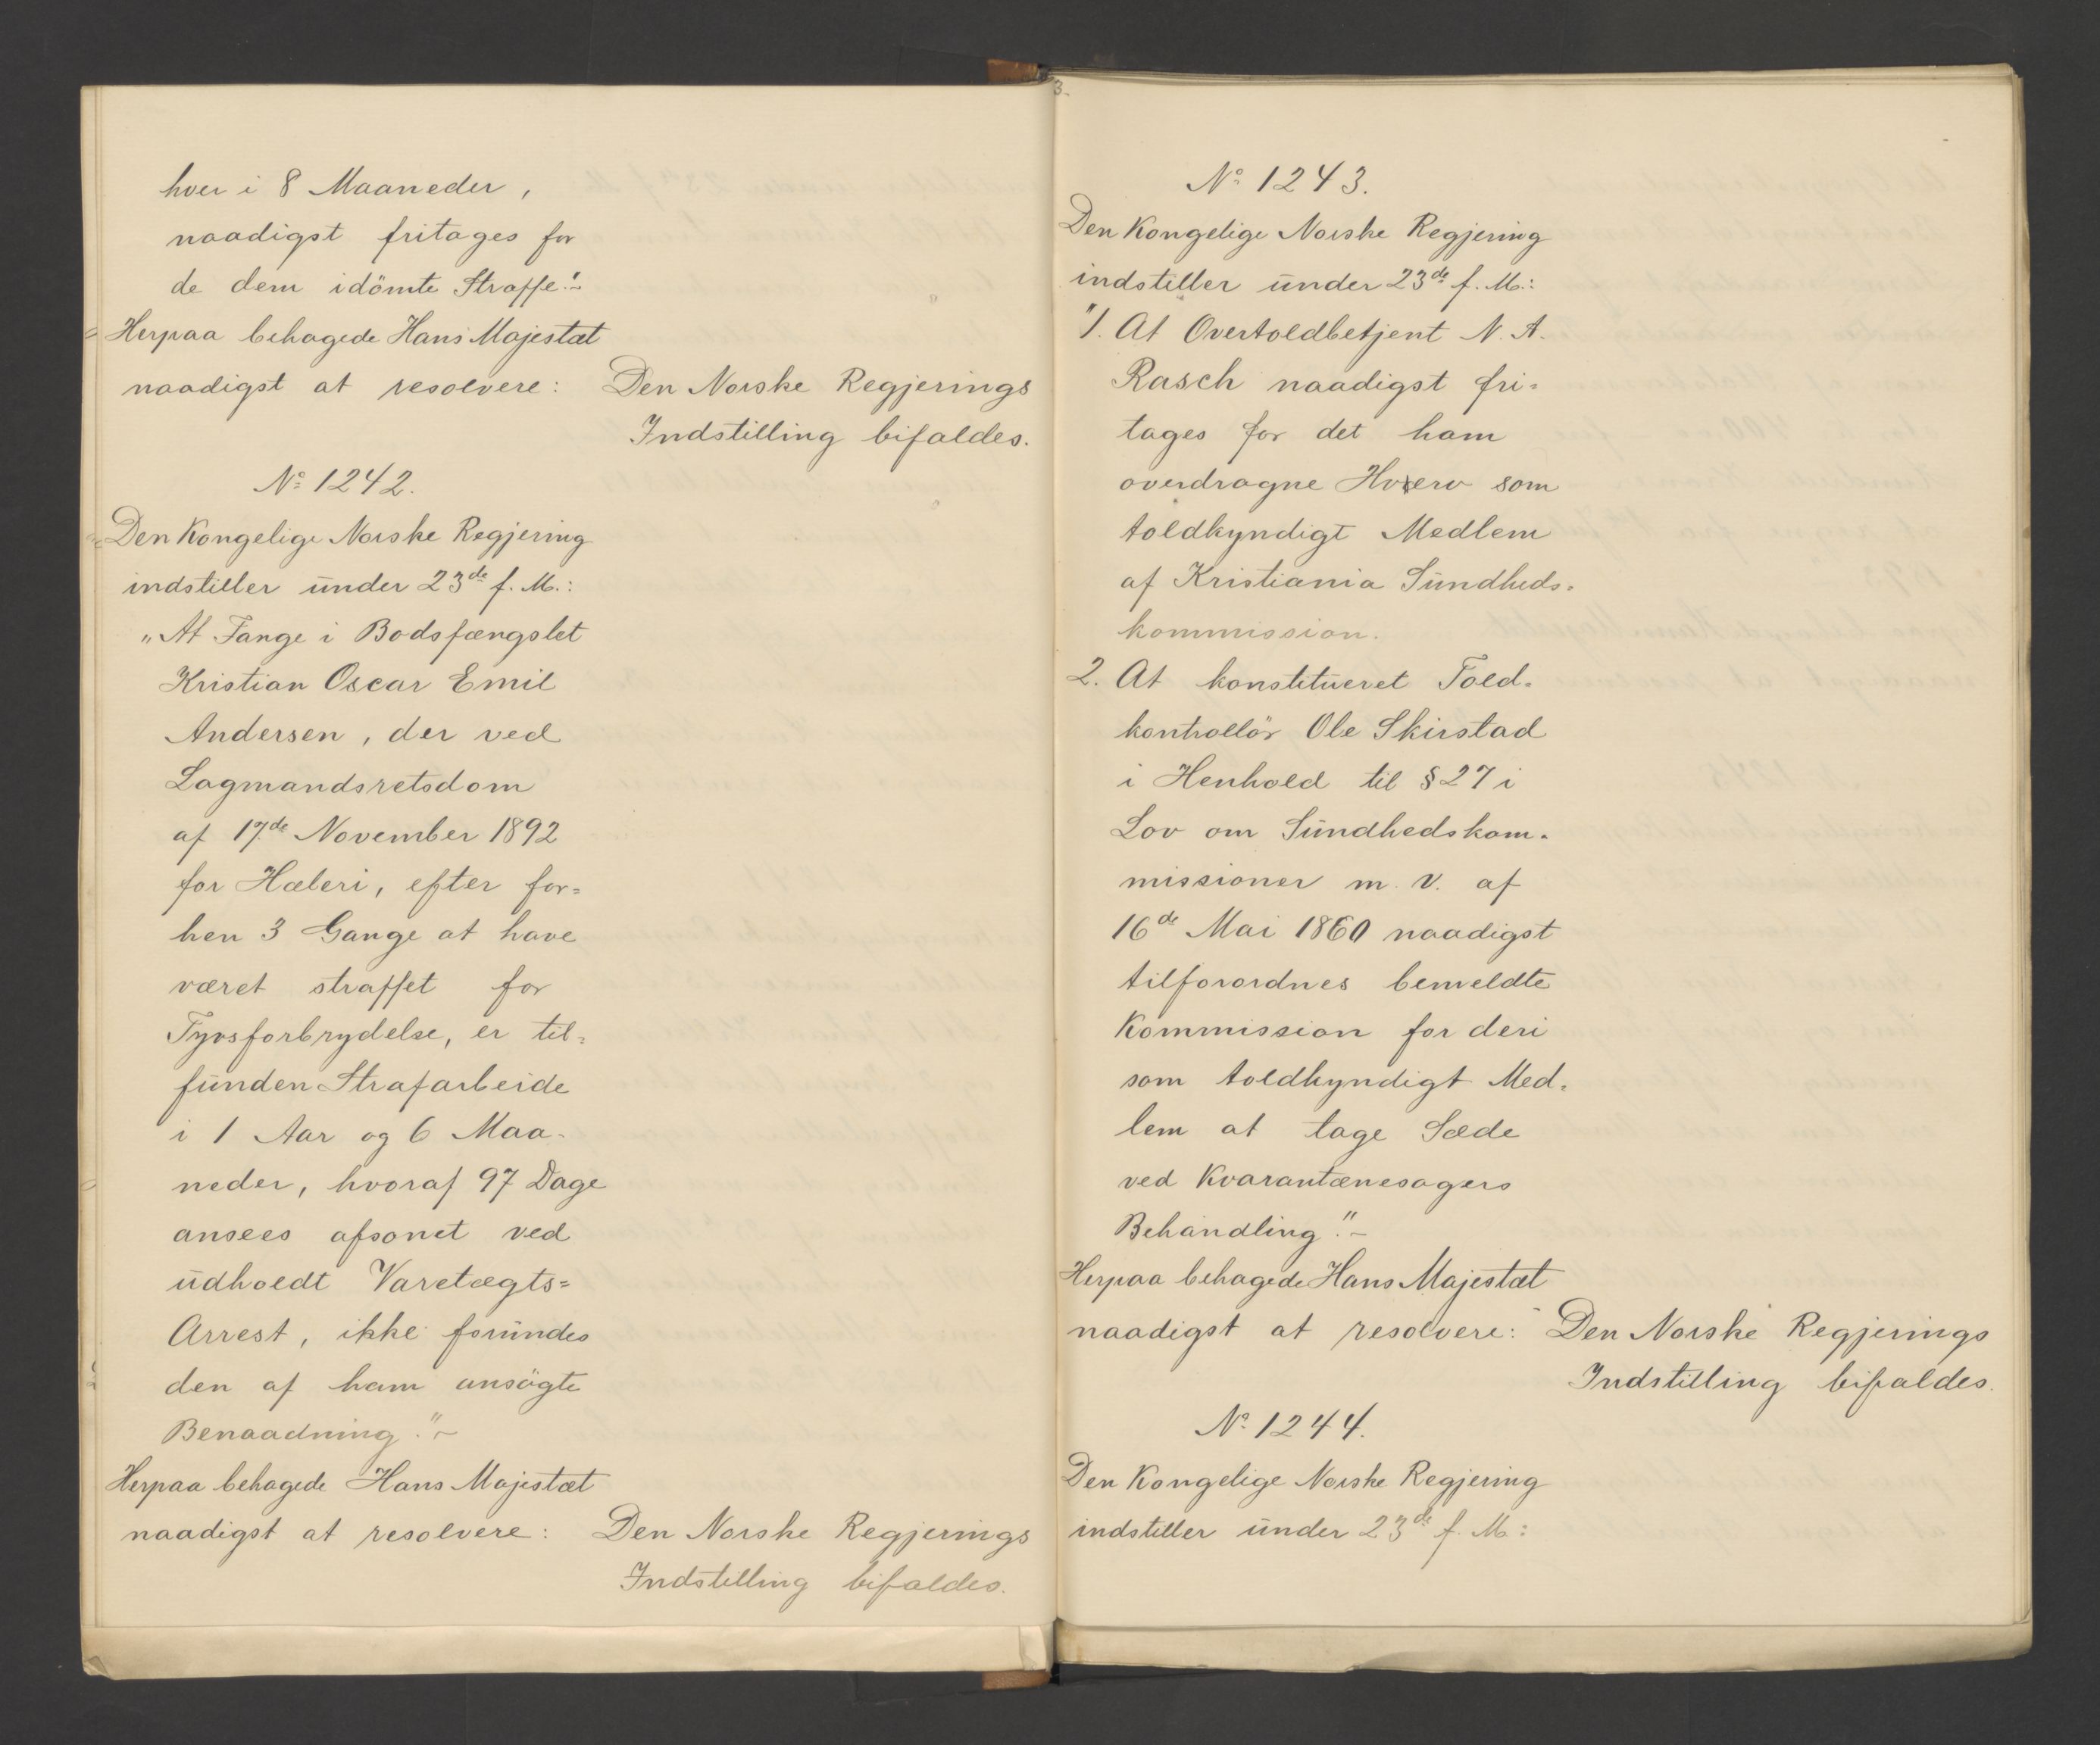 hver i 8 Maaneder,
naadigst fritages for
de dem idömte Straffe."-
Herpaa behagede Hans Majestæt
naadigst at resolvere: Den Norske Regjerings
Indstilling bifaldes.
No 1242.
Den Kongelige Norske Regjering
indstiller under 23de f. M.:
„At Fange i Bodsfængslet
Kristian Oscar Emil
Andersen, der ved
Lagmandsretsdom
af 17de November 1892
for Hæleri, efter for=
hen 3 Gange at have
været straffet for
Tyvsforbrydelse, er til=
funden Strafarbeide
i 1 Aar og 6 Maa-
neder, hvoraf 97 Dage
ansees afsonet ved
udholdt Varetægts=
Arrest, ikke forundes
den af ham ansögte
Benaadning."-
Herpaa behagede Hans Majestæt
naadigst at resolvere: Den Norske Regjerings
Indstilling bifaldes.
3.
No 1243.
Den Kongelige Norske Regjering
indstiller under 23de f. M.:
"1. At Overtoldbetjent N. A.
Rasch naadigst fri=
tages for det ham
overdragne Hverv som
toldkyndigt Medlem
af Kristiania Sundheds=
kommission.
2. At konstitueret Told=
kontrollör Ole Skirstad
i Henhold til § 27 i
Lov om Sundhedskom=
missioner m. v. af
16de Mai 1860 naadigst
tilforordnes bemeldte
Kommission for deri
som toldkyndigt Med=
lem at tage Sæde
ved Kvarantænesagers
Behandling."-
Herpaa behagede Hans Majestæt
naadigst at resolvere: Den Norske Regjerings
Indstilling bifaldes.
No 1244.
Den Kongelige Norske Regjering
indstiller under 23de f. M: